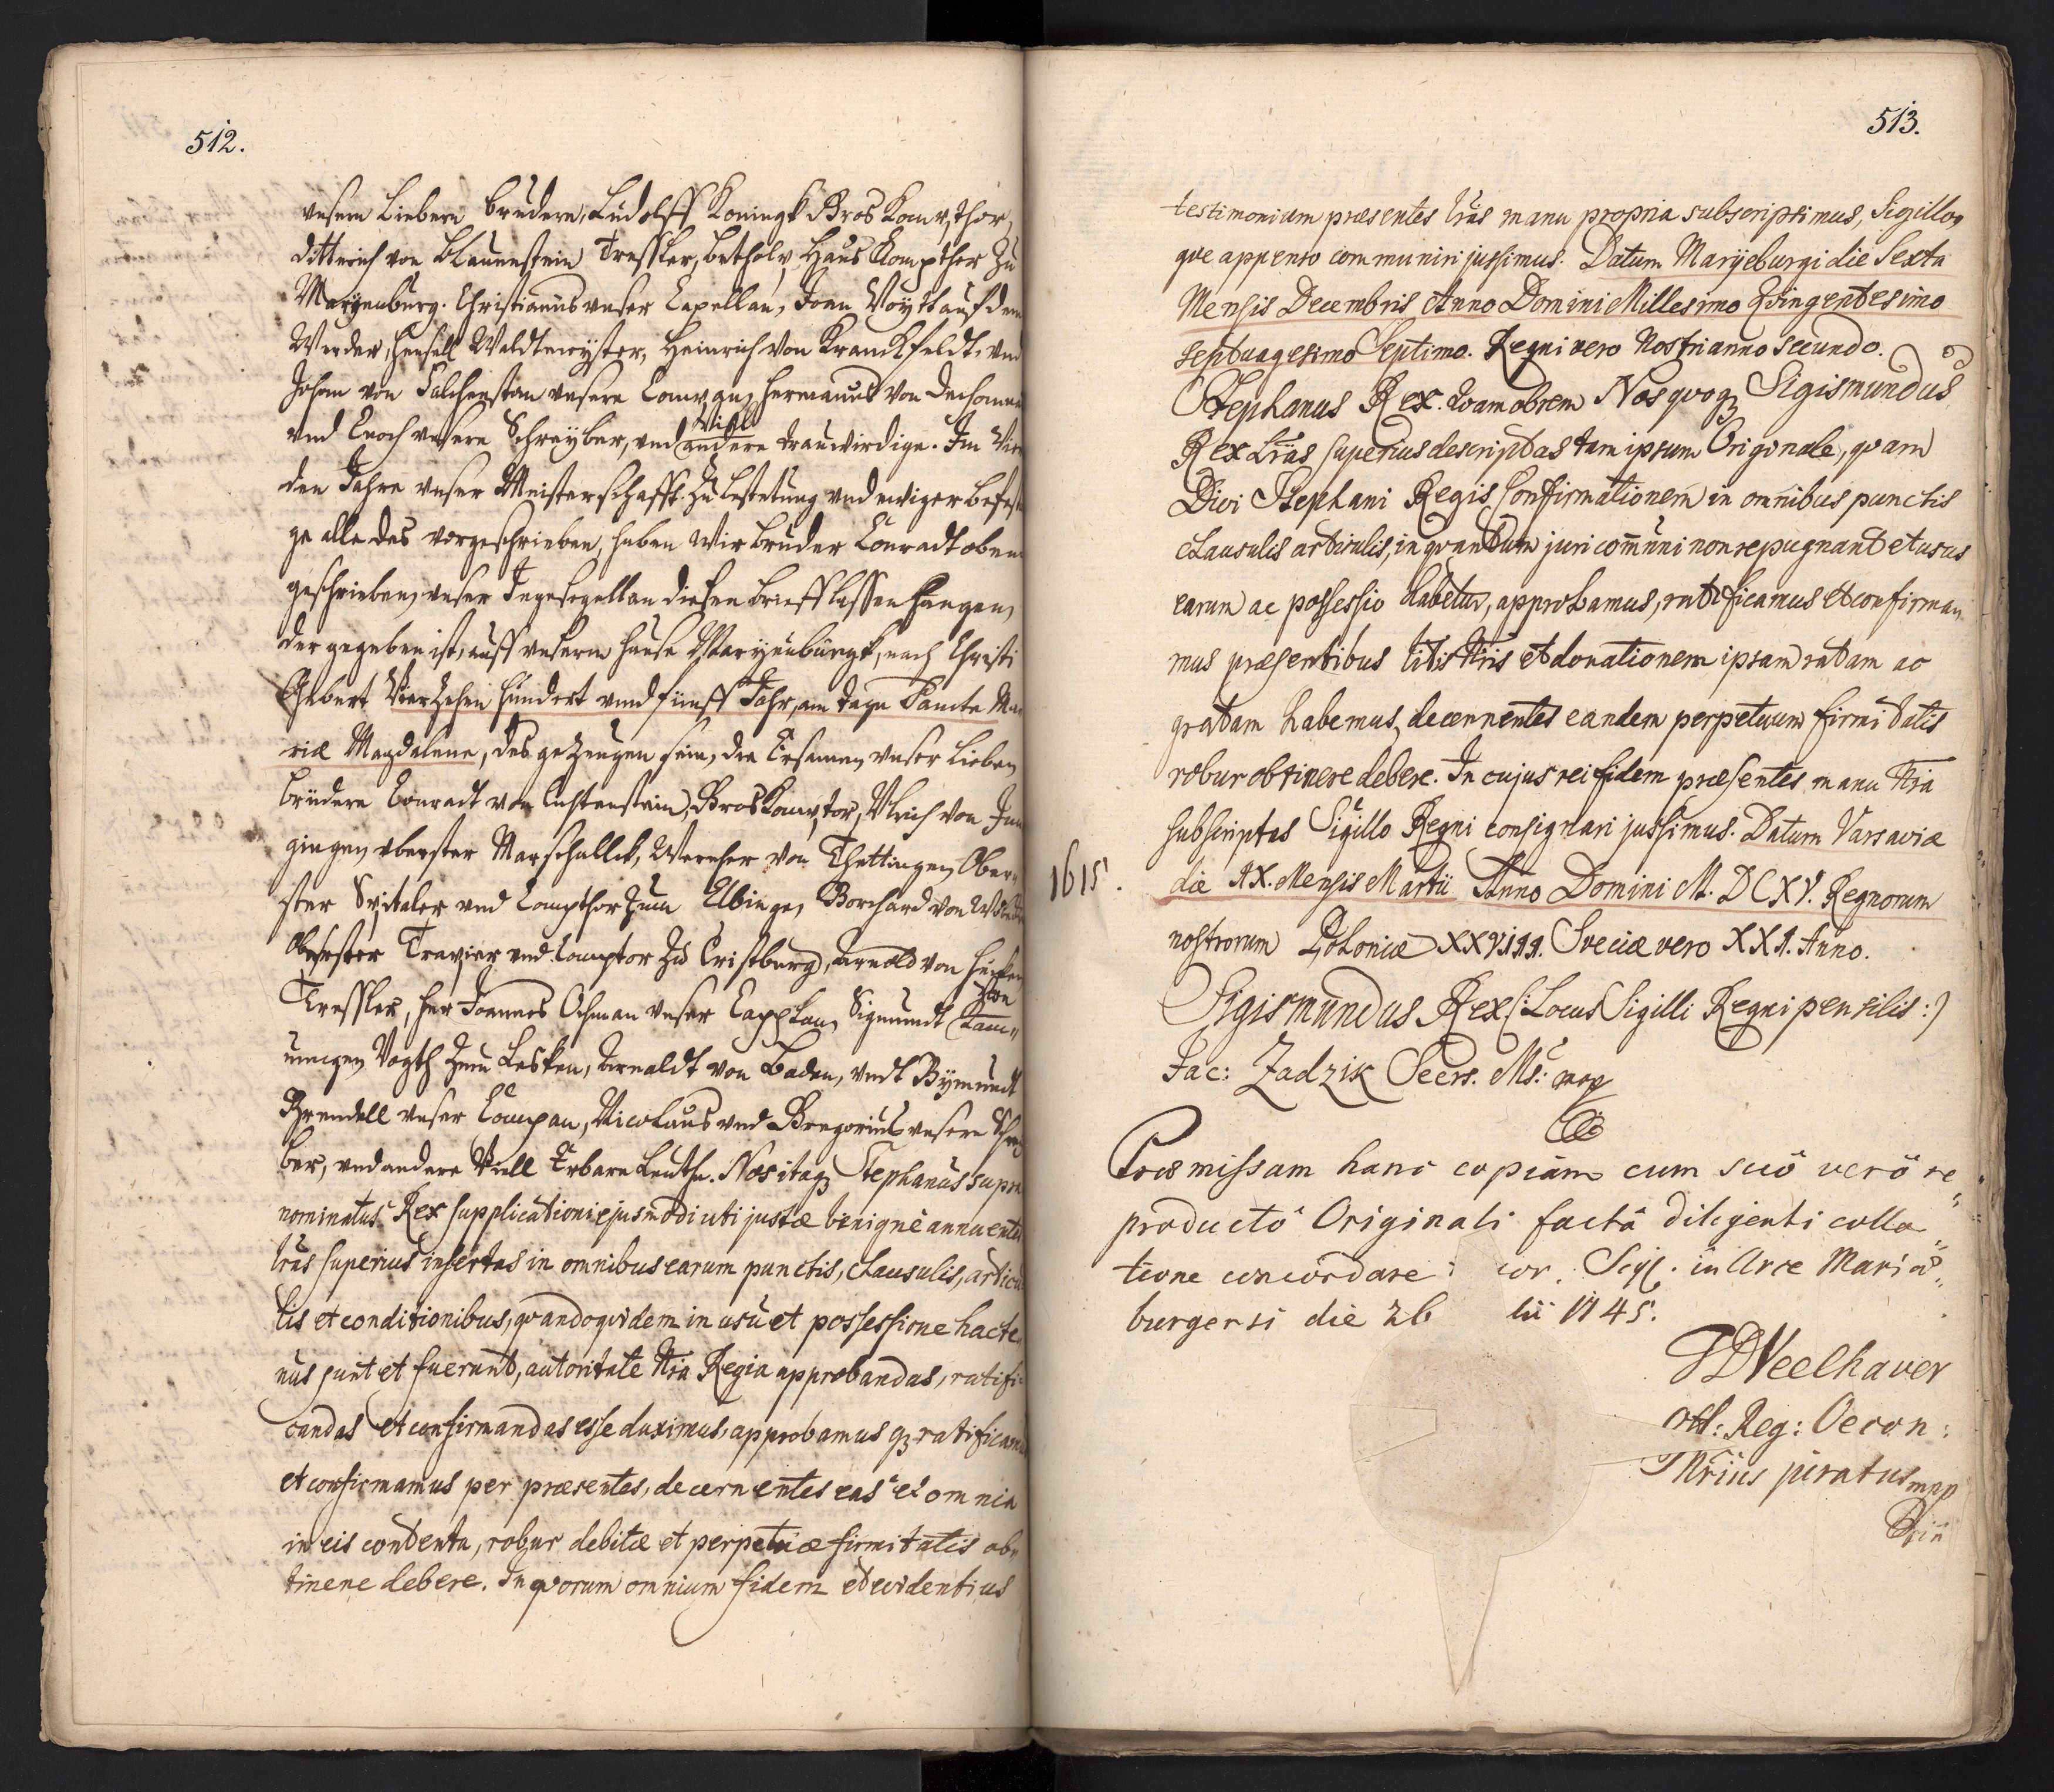 512.
unsern Liebern brudern, Ludolff Koningk Gros Kompthor,
Ditterich von Blauenstein Tressler, bethold, Haus Kompther zu
Maryenburg. Christianus unser Capellan, Voytt auf dem
Werder, Waldmeyster, Heinrich von Kranchfeldt, und
Johan von Falchenstan unsere Compan, Hermanus von
viel
und Enoch unsere Schreyber, und andere trauwirdige. Im
den Jahre unser Meisterschafft. Zu bestetung und ewiger
ge alle des vorgeschrieben, haben wir bruder Conradt oben
geschrieben, unser Ingesegell an diesen brieff lassen hangen,
der gegeben ist, auff unserm hause Maryenburgk, nach Christi
Geburt Vierzehen hundert und fünff Jahr, am tage Sancte Ma
riæ Magdalene, des gezeugen sein, die Ersamen unser lieben
brüdere Conradt von Lichtenstein, Groskomptor, Ulrich von Jun
gingen oberster Marschallck, Wernher von Thettingen Ober-
ster Spitaler und Compthor zum Elbinge, Borchard von
Oberster Trapier und Comptor zu Cristburg, Arnold von
Tressler, her Joannes Ochman unser Capelan, Sigmundt Ram-
mungen Vogth zum Lesken, Arnoldt von Baden, undt
Brendell unser Compan, Nicolaus und Gregorius unsere Schrey
ber, und andere Viell Erbare Leuthe. Nos itaq3 Stephanus supra
nominatus Rex supplicationi ejusmodi uti justæ benigne annuentes
Lras superius insertas in omnibus earum punctis, clausulis, articu
lis et conditionibus, quandoquidem in usu et possessione hacte
nus sunt et fuerunt, autoritate Nra Regia approbandas, ratifi-
candas et confirmandas esse duximus, approbamus q3 ratificamus
et confirmamus per præsentes, decernentes eas et omnia
in eis contenta, robur debitæ et perpetuæ firmitatis ob-
tinere debere. In quorum omnium fidem et evidentius
513.
testimonium præsentes Lras manu propria subscripsimus, Sigillo
que appenso communiri jussimus. Datum Maryeburgi die Sexta
Mensis Decembris Anno Domini Millesimo Quingentesimo
septuagesimo Septimo. Regni vero Nostri anno secundo.
Stephanus Rex. Quamobrem Nos quoq3 Sigismundus
Rex Lras superius descriptas tam ipsum Originale, quam
Divi Stephani Regis Confirmationem in omnibus punctis
clausulis articulis, in quantum juri communi non repugnant et usus
earum ac possessio habetur, approbamus, ratificamus et confirma-
mus præsentibus litis Nris et donationem ipsam ratam ac
gratam habemus, decernentes eandem perpetuum firmitatis
robur obtinere debere. In cujus rei fidem præsentes manu Nra
subscriptas Sigillo Regni consignari jussimus. Datum Varsaviæ
1615. die IX. Mensis Martii Anno Domini M. DCXV. Regnorum
nostrorum Poloniæ XXVIII. Sveciæ vero XXI. Anno.
Sigismundus Rex (: Locus Sigilli Regni pensilis :)
Jac: Zadzik Secrs. Ms: mp
Præmissam hanc copiam cum suô verô re
productô Originali factâ diligenti colla
tione concordare: cor. in Arce Mariæ
burgensi die 26 lii 1745.
Neelhaver
Reg: Oecon:
Nrius juratus mpp